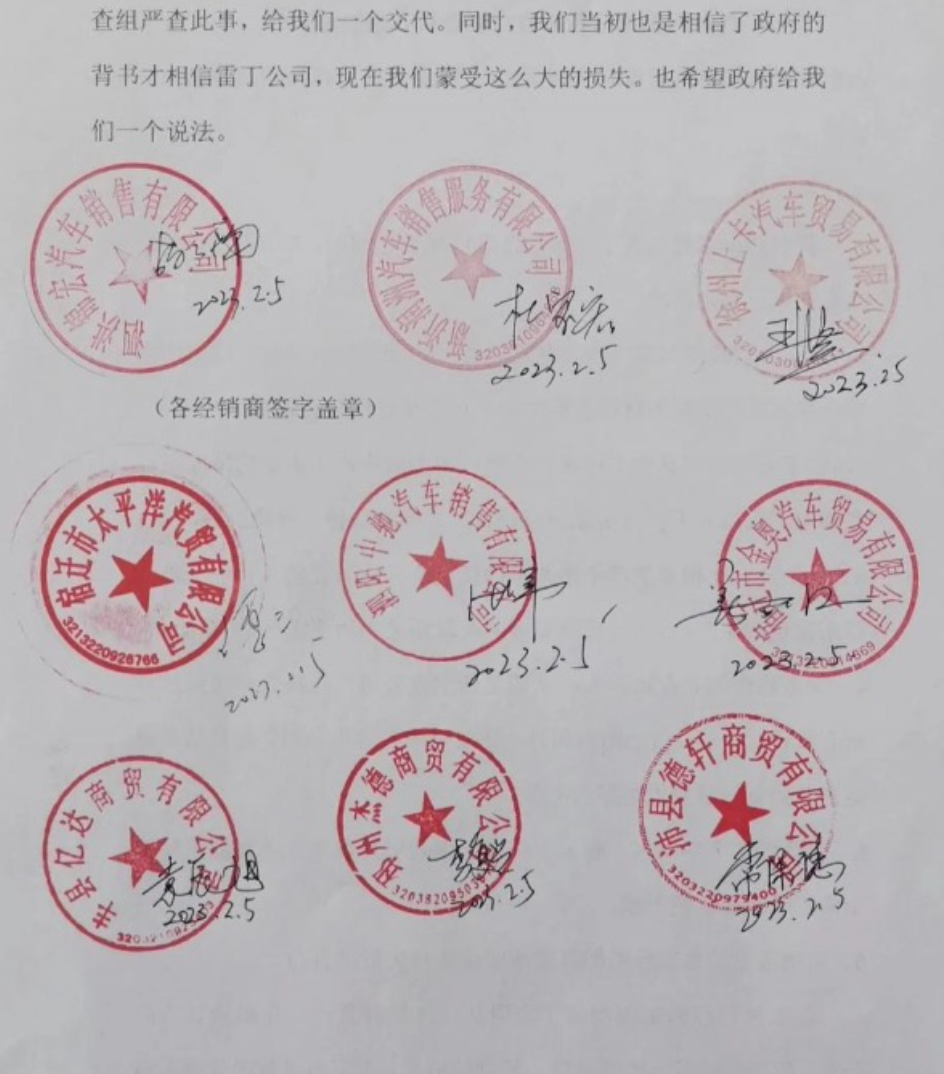 查组严查此事，给我们一个交代。同时，我们当初也是相信了政府的
背书才相信雷丁公司，现在我们蒙受这么大的损失。也希望政府给我
们一个说法。
汽车销售有限公司
2023.2.5
新沂宿洲汽车销售服务有限公司
2023.2.5
徐州上卡汽车贸易有限公司
2023.2.5
（各经销商签字盖章）
宿迁市太平洋汽贸有限公司
3213220926766
泗阳中驰汽车销售有限公司
2023.2.5
市金奥汽车贸易有限公司
2023.2.5
丰县亿达商贸有限公
2023.2.5
邳州杰德商贸有限公
沛县德轩商贸有限公
3203220979400
2023.2.5